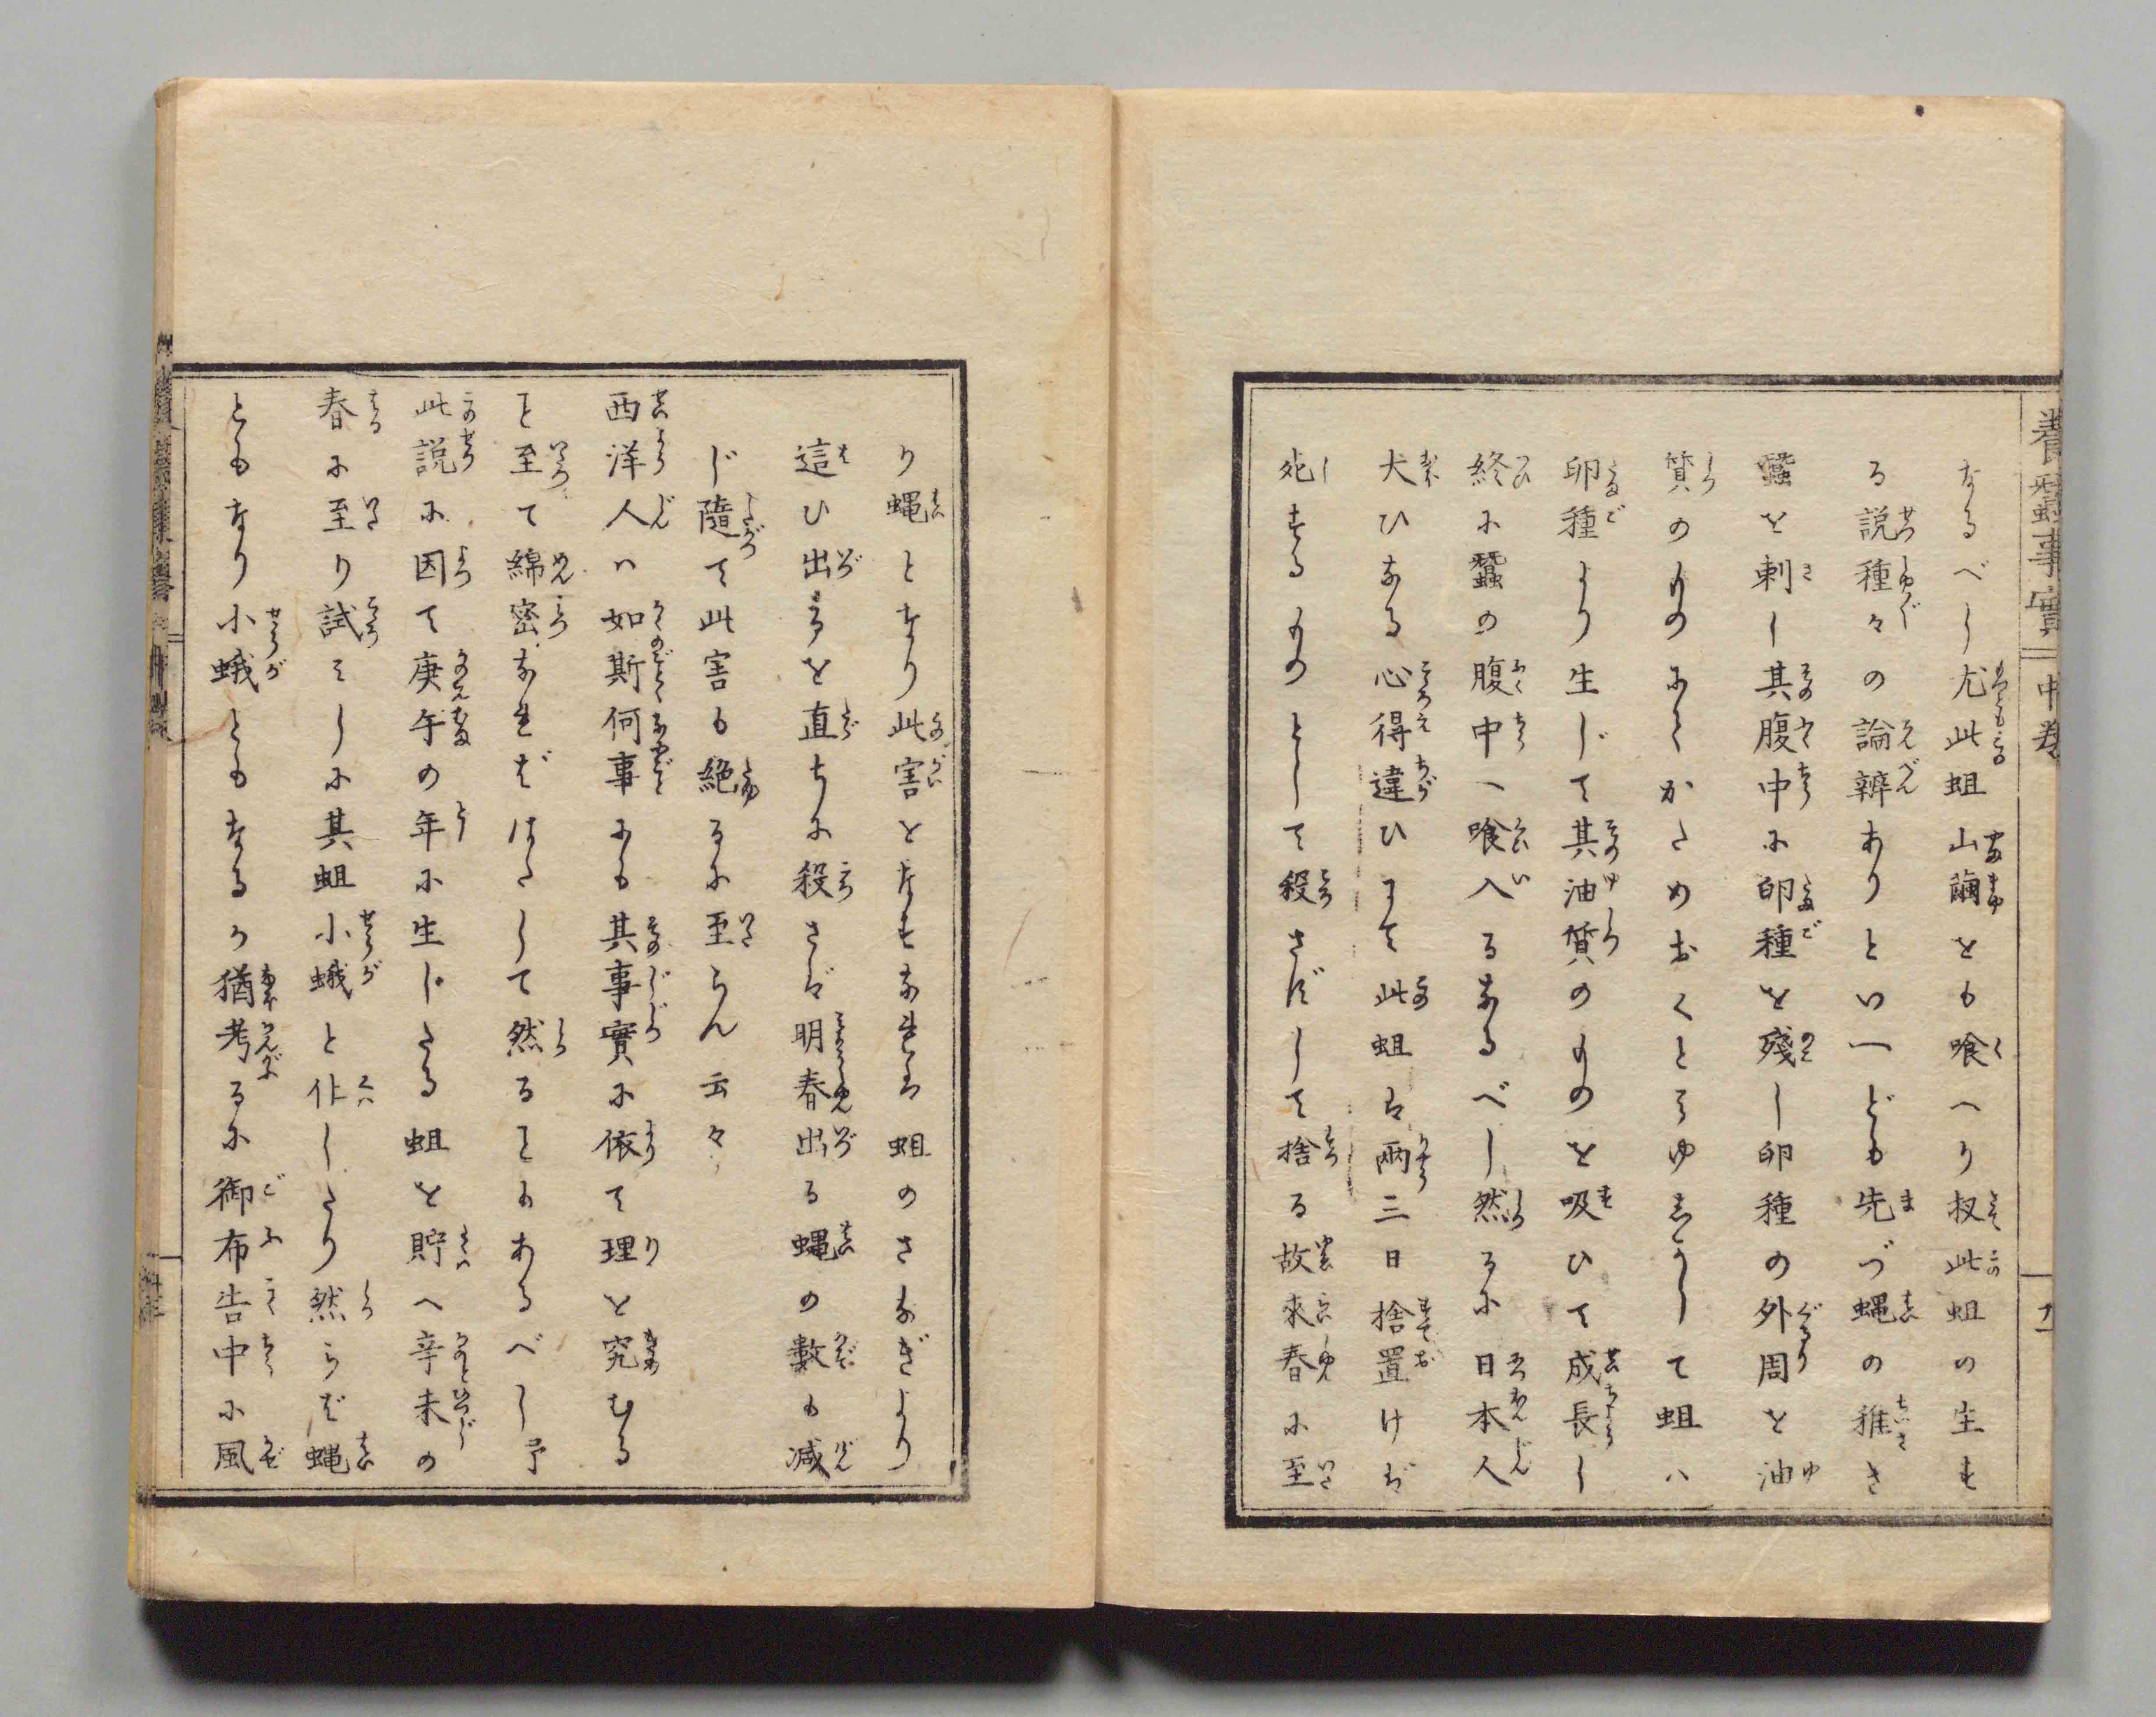 養蠶事實 中巻 九
なるべし尤此蛆山繭をも喰へり扨此蛆の生ず
る説種々の論辨ありといへども先づ蝿の稚さき
蠶を刺し其腹中に卵種を殘し卵種の外周を油
質のものにてかためおくとみゆ而して蛆ハ
卵種より生じて其油質のものを吸ひて成長し
終に蠶の腹中へ喰入るなるべし然るに日本人
大ひなる心得違ひにて此蛆は兩三日捨置けば
死するものとして殺さずして捨る故來春に至
り蝿となり此害をなすなれば蛆のさなぎより
這ひ出るを直ちに殺さば明春出る蝿の數も減
じ隨て此害も絶るに至らん云々
西洋人ハ如斯何事にも其事實に依て理を究むる
こと至て綿密なればはたして然ることもあるべし予
此説に因て庚午の年に生じたる蛆を貯へ辛未の
春に至り試みしに其蛆小蛾と化したり然らば蝿
ともなり小蛾ともなるか猶考るに御布告中に風